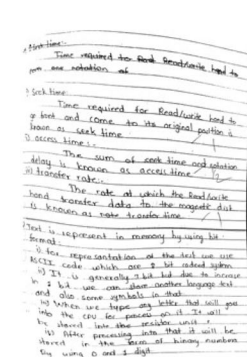 Time required to Read Read/write head to
rotation of
Seek time:-
Time required for Read/write head to
and come to its original position is
known as seek time
access time:-
The sum of seek time and rotation
delay is known as access time
iii) transfer rate:-
The rate at which the Read/write
hand transfer data to the magnetic disk
is known as rate transfer time.
Text is represent in memory by using bit
format.
i) for representation of the text we use
ASCII code which are 8 bit coded system
ii) It is generally 7 bit but due to increase
in 8 bit we can store another language text
and also some symbols in that
when we type any letter that will goes
into the cpu for process on it. It will
be stored into the resistor unit
After processing into that it will be
stored in the form of binary numbers
by using 0 and 1 digit